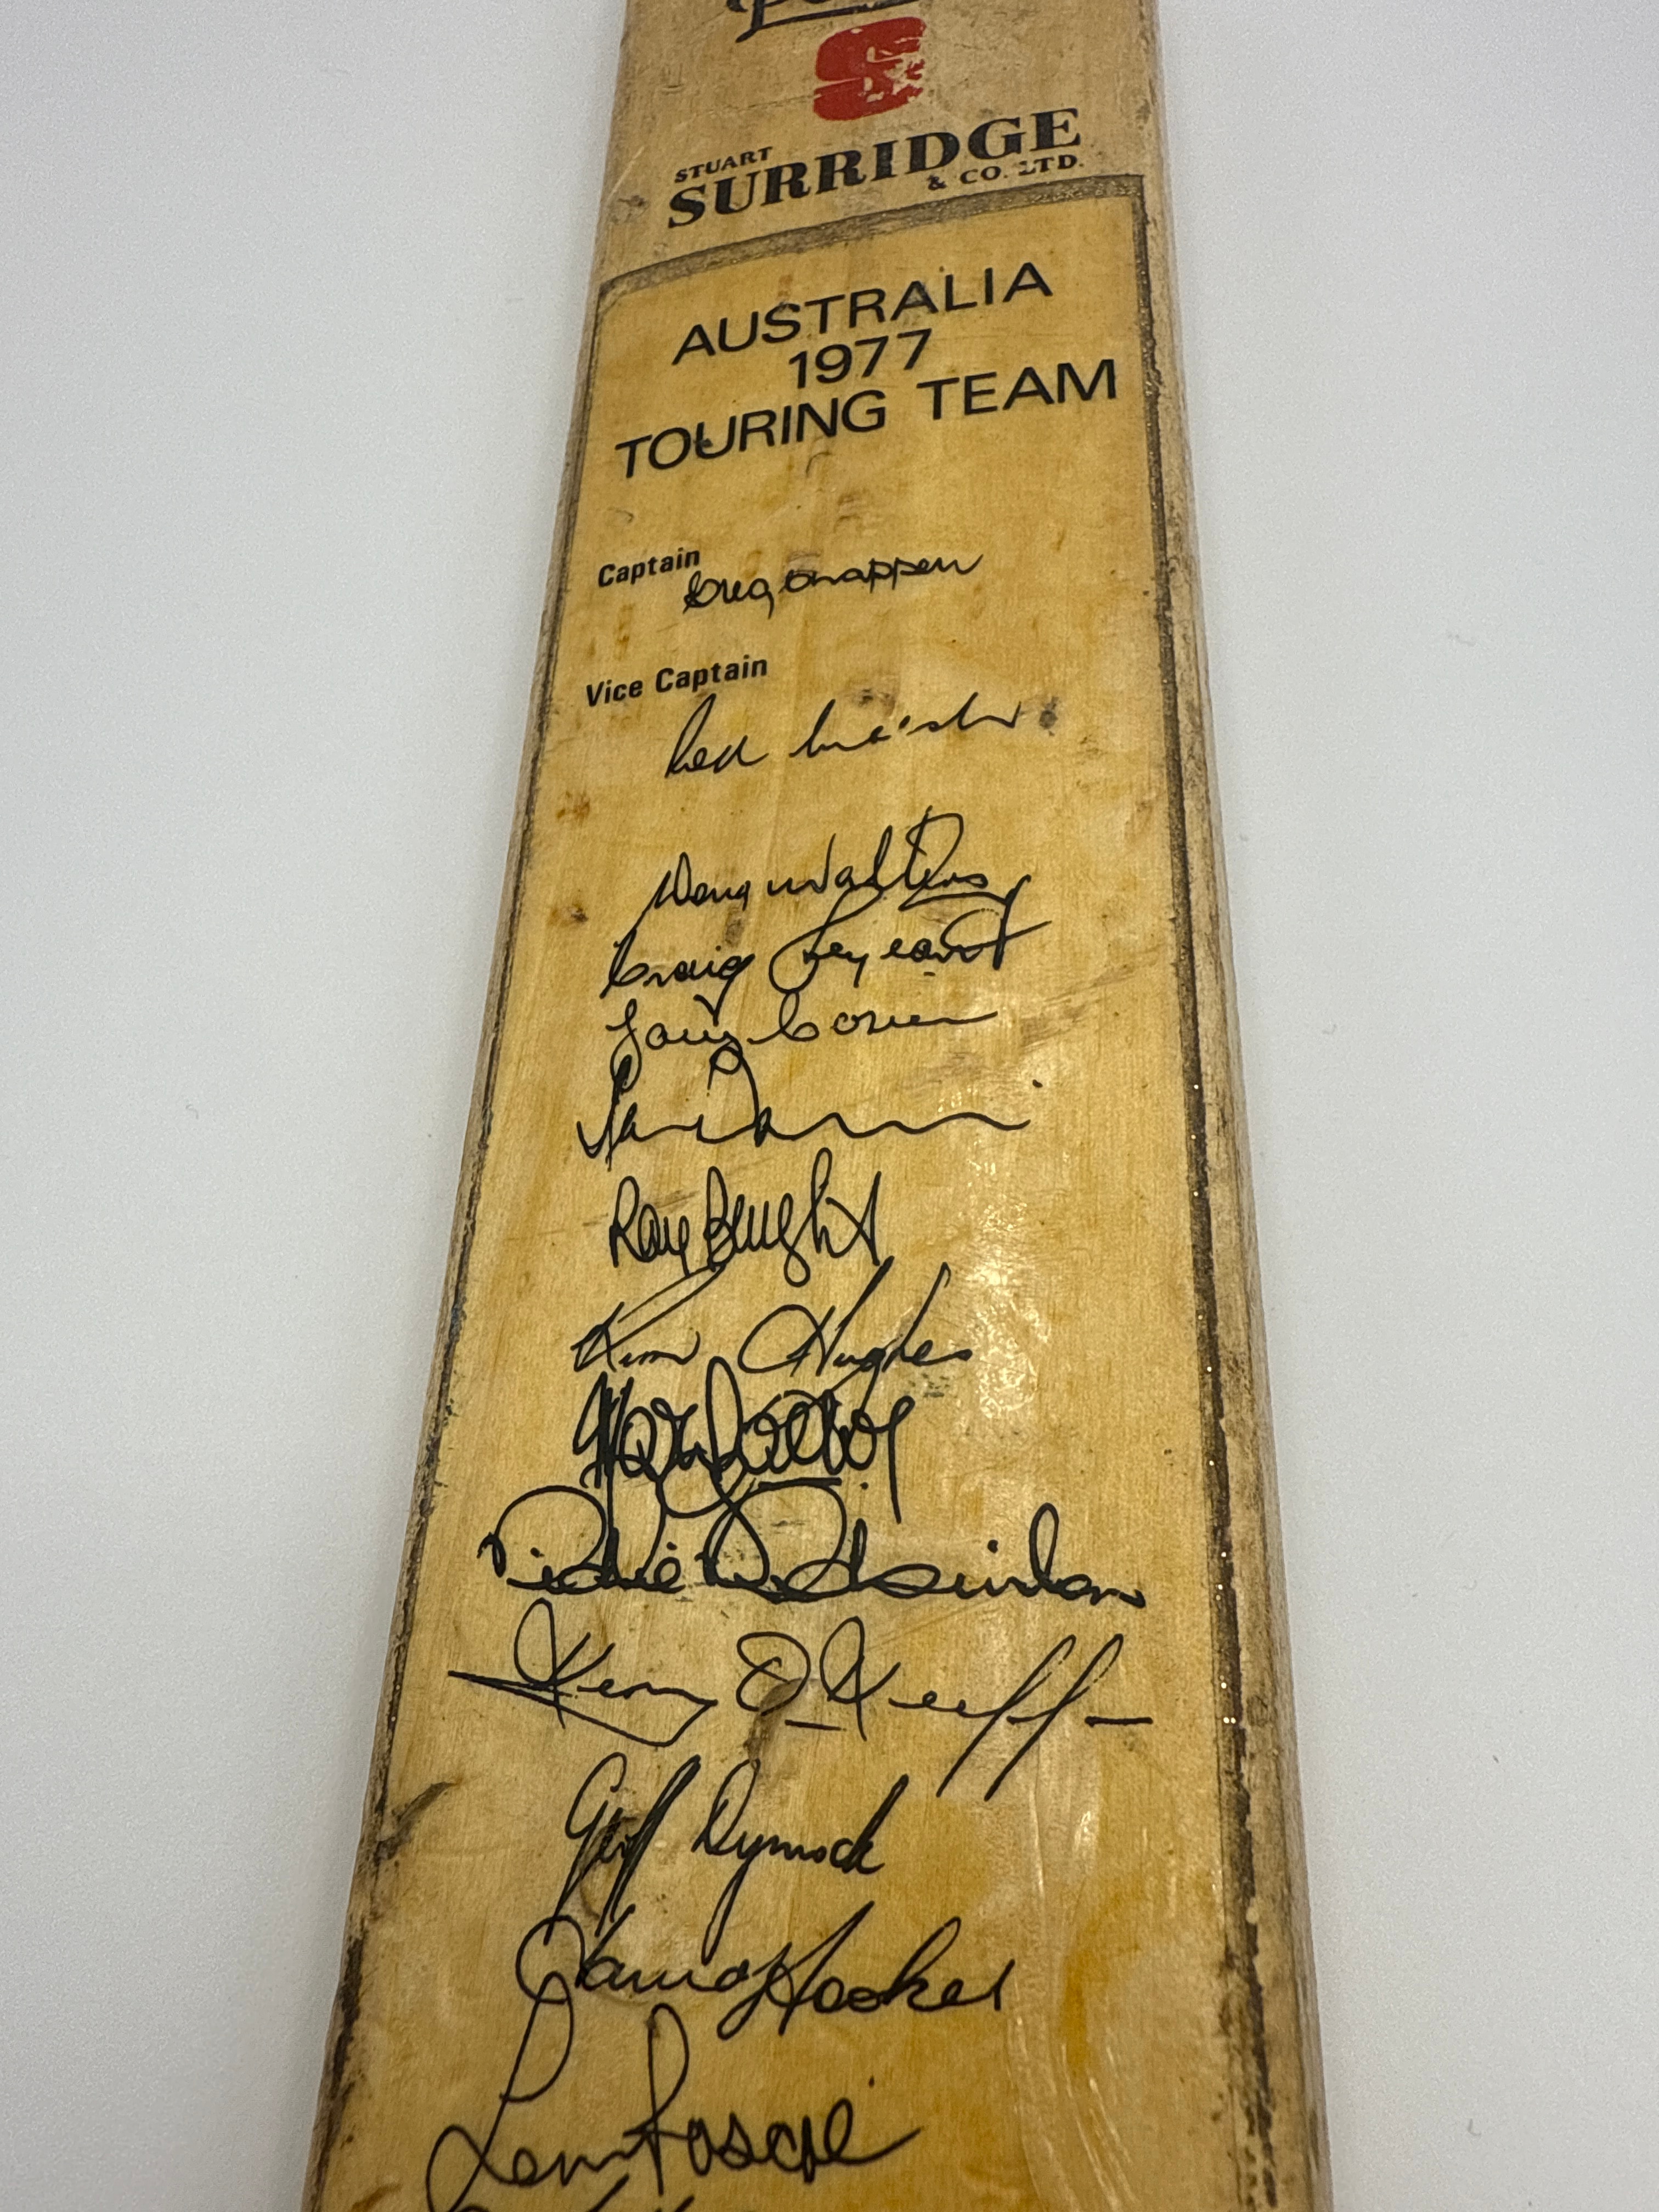 S
STUART
SURRIDGE
& CO. LTD.
AUSTRALIA
1977
TOURING TEAM
Captain
Greg Chappell
Vice Captain
Rod Marsh
Doug Walters
Craig Serjeant
Gary Cosier
Ian Davis
Ray Bright
Kim Hughes
Mick Malone
Richie D Robinson
Kerry O'Keeffe
Geoff Dymock
David Hookes
Len Pascoe